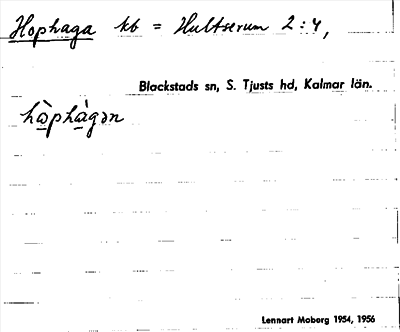 Hophaga kb = Hultserum 2:4,
Blackstads sn, S. Tjusts hd, Kalmar län.
hòphàgən
Lennart Moberg 1954, 1956